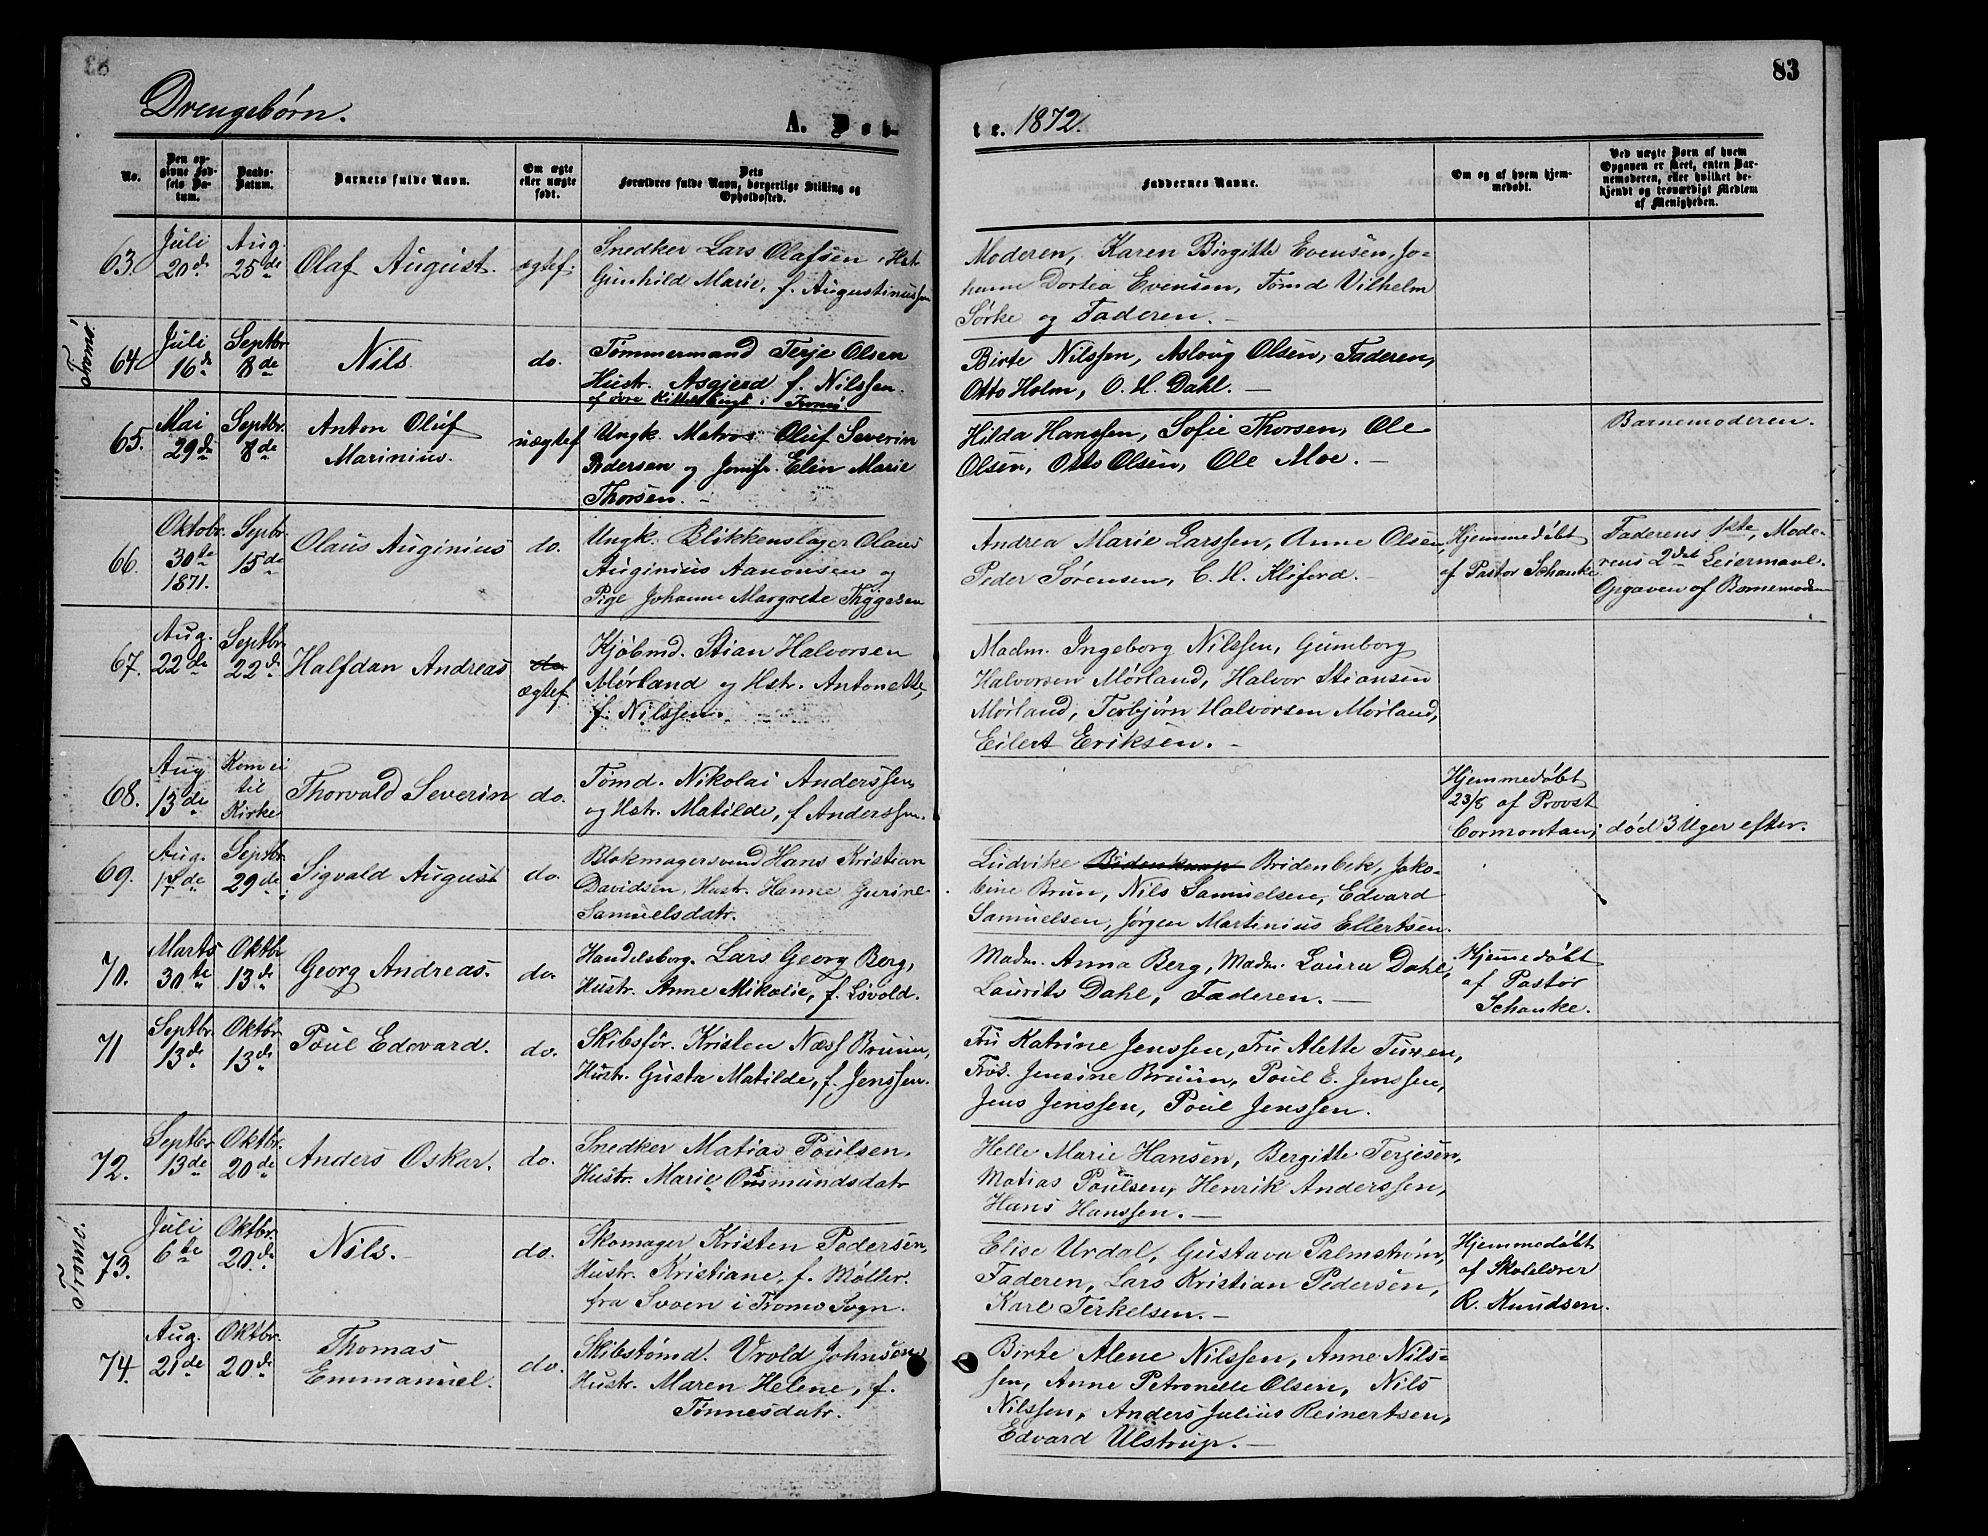 83
Drengebørn.
A. Døb-
te. 1872.
No.
Den op-
givne Fød-
sels Da-
tum.
Daabs-
Datum.
Barnets fulde Navn.
Om ægte
eller uægte
født.
Dets
Forældres fulde Navn, borgerlige Stilling og
Opholdssted.
Faddernes Navne.
Om og af hvem hjem-
medøbt.
Ved uægte Børn af hvem
Opgaven er skeet, enten Bar-
nemoderen, eller hvilket be-
kjendt og troværdigt Medlem
af Menigheden.
63.
Juli
20de
Aug.
25de
Olaf August.
ægtef.
Snedker Lars Olafsen, Hst.
Gunhild Marie, f. Augustinussen
Moderen, Karen Birgitte Evensen, Jo-
hanne Dortea Evensen, Tømd Vilhelm
Sørke og Faderen. —
Tromø
64
Juli
16de
Septbr
8de
Nils
do.
Tømmermand Terje Olsen
Hustr. Asgjerd f. Nilssen.
af øvre Kittelsbugt i Tromø.
Birte Nilssen, Aslaug Olsen, Faderen,
Otto Holm, O. H. Dahl. —
65.
Mai
29de
Septbr.
8de
Anton Oluf
Marinius.
uægtef
Ungk. Matros Oluf Severin
Pedersen og Jomfr. Elin Marie
Thorsen. —
Hilda Hanssen, Sofie Thorsen, Ole
Olsen, Otto Olsen, Ole Moe. —
Barnemoderen.
66.
Oktobr.
30te
1871.
Septbr.
15de
Olaus Auginius
do.
Ungk. Blikkenslager Olaus
Auginius Aanonsen og
Pige Johanne Margrete Thygesen
Andrea Marie Larssen, Anne Olsen,
Peder Sørensen, C. H. Kliford. —
Hjemmedøbt
af Pastor Schanke
Faderens 1ste, Mode-
rens 2det Leiermaal.
Opgaven af Barnemoderen
67.
Aug.
22de
Septbr
22de
Halfdan Andreas
do
ægtef
Kjøbmd. Stian Halvorsen
Mørland og Hstr. Antonette,
f. Nilssen.
Madm. Ingeborg Nilssen, Gunborg
Halvorsen Mørland, Halvor Stiansen
Mørland, Torbjørn Halvorsen Mørland,
Eilert Eriksen. —
68.
Aug
13de
Kom ei
til
Kirke
Thorvald Severin
do.
Tømd. Nikolai Anderssen,
og Hstr. Matilde, f Anderssen.
Hjemmedøbt
23/8 af Provst
Cormontan;
død 3 Uger efter.
69.
Aug.
17de
Septbr
29de
Sigvald August
do.
Blokmagersvend Hans Kristian
Davidsen, Hustr. Hanne Gurine
Samuelsdatr.
Ludvike Bridenbek, Jako-
bine Brun, Nils Samuelsen, Edvard
Samuelsen, Jørgen Martinius Ellertsen.
70.
Marts
30te
Oktbr
13de
Georg Andreas.
do.
Handelsborg. Lars Georg Berg,
Hustr. Anne Mikalie, f. Løvold.
Madm. Anna Berg, Madm. Laura Dahl,
Laurits Dahl, Faderen. —
Hjemmedøbt
af Pastor
Schanke.
71
Septbr.
13de
Oktbr.
13de
Poul Edevard.
do.
Skibsfør. Kristen Næss Bruun,
Hustr. Gusta Matilde, f. Jenssen.
Fru Katrine Jenssen, Fru Alette Tuxen,
Frøk. Jensine Bruun, Poul E. Jenssen,
Jens Jenssen, Poul Jenssen.
72.
Septbr
13de
Oktbr.
20de
Anders Oskar.
do.
Snedker Matias Poulsen.
Hustr. Marie Osmundsdatr
Helle Marie Hansen, Bergitte Terjesen,
Matias Poulsen, Henrik Anderssen,
Hans Hanssen. —
Tromø.
73.
Juli
6te
Oktbr.
20de
Nils. —
do.
Skomager Kristen Pedersen,
Hustr. Kristiane, f. Møller.
fra Svoen i Tromø Sogn.
Elise Urdal, Gustava Palmstrøm,
Faderen, Lars Kristian Pedersen,
Karl Terkelsen. —
Hjemmedøbt
af Skolelærer
R. Knudsen.
74.
Aug.
21de
Oktbr.
20de
Thomas
Emmanuel.
do.
Skibstømd. Vrold Johnsen
Hustr. Maren Helene, f.
Tønnesdatr.
Birte Alene Nilssen, Anne Nils-
sen, Anne Petronelle Olsen, Nils
Nilssen, Anders Julius Reinertsen,
Edvard Ulstrup. —